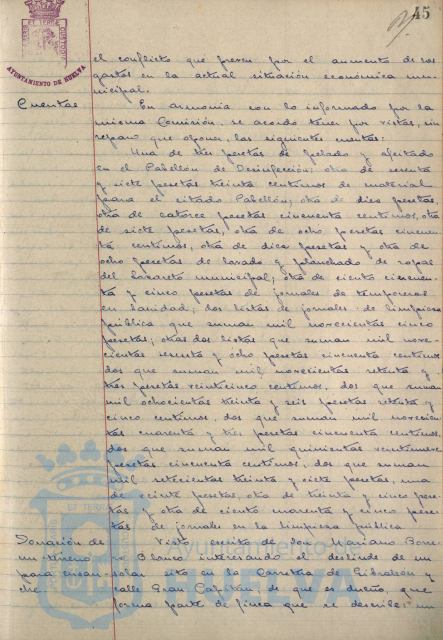 45
AYUNTAMIENTO DE HUELVA
el conflicto que prevén por el aumento de los
gastos en la actual situación económica mu-
nicipal.
Cuentas
En armonía con lo informado por la
misma Comisión, se acordó tener por vistas, sin
reparo que oponer, las siguientes cuentas:
Una de tres pesetas de pelado y afeitado
en el Pabellón de Desinfección; otra de sesenta
y siete pesetas treinta centimos de material
para el citado Pabellón; otra de diez pesetas,
otra de catorce pesetas cincuenta centimos, otra
de siete pesetas, otra de ocho pesetas cincuen-
ta centimos, otra de diez pesetas y otra de
ocho pesetas de lavado y planchado de ropas
del Lazareto municipal; otra de ciento cincuen-
ta y cinco pesetas de jornales de temporeros
en Sanidad; dos listas de jornales de limpieza
pública que suman mil novecientas cinco
pesetas; otras dos listas que suman mil nove-
cientas sesenta y ocho pesetas cincuenta centimos
dos que suman mil novecientas setenta y
tres pesetas veinticinco centimos, dos que suman
mil ochocientas treinta y seis pesetas setenta y
cinco centimos, dos que suman mil novecien-
tas cuarenta y tres pesetas cincuenta centimos,
dos que suman mil quinientas veintinueve
pesetas cincuenta centimos, dos que suman
mil setecientas treinta y siete pesetas, una
de veinte pesetas, otra de treinta y cinco pese-
tas y otra de ciento cuarenta y cinco pese-
tas de jornales en la limpieza pública.
Donación de
un terreno
para ensan-
che
Visto escrito de don Mariano Bone-
ro Blanco interesando el deslinde de un
solar sito en la Carretera de Gibraleón y
calle Gran Capitán, de que es dueño, que
forma parte de finca que se describe: un
AYUNTAMIENTO DE
HUELVA